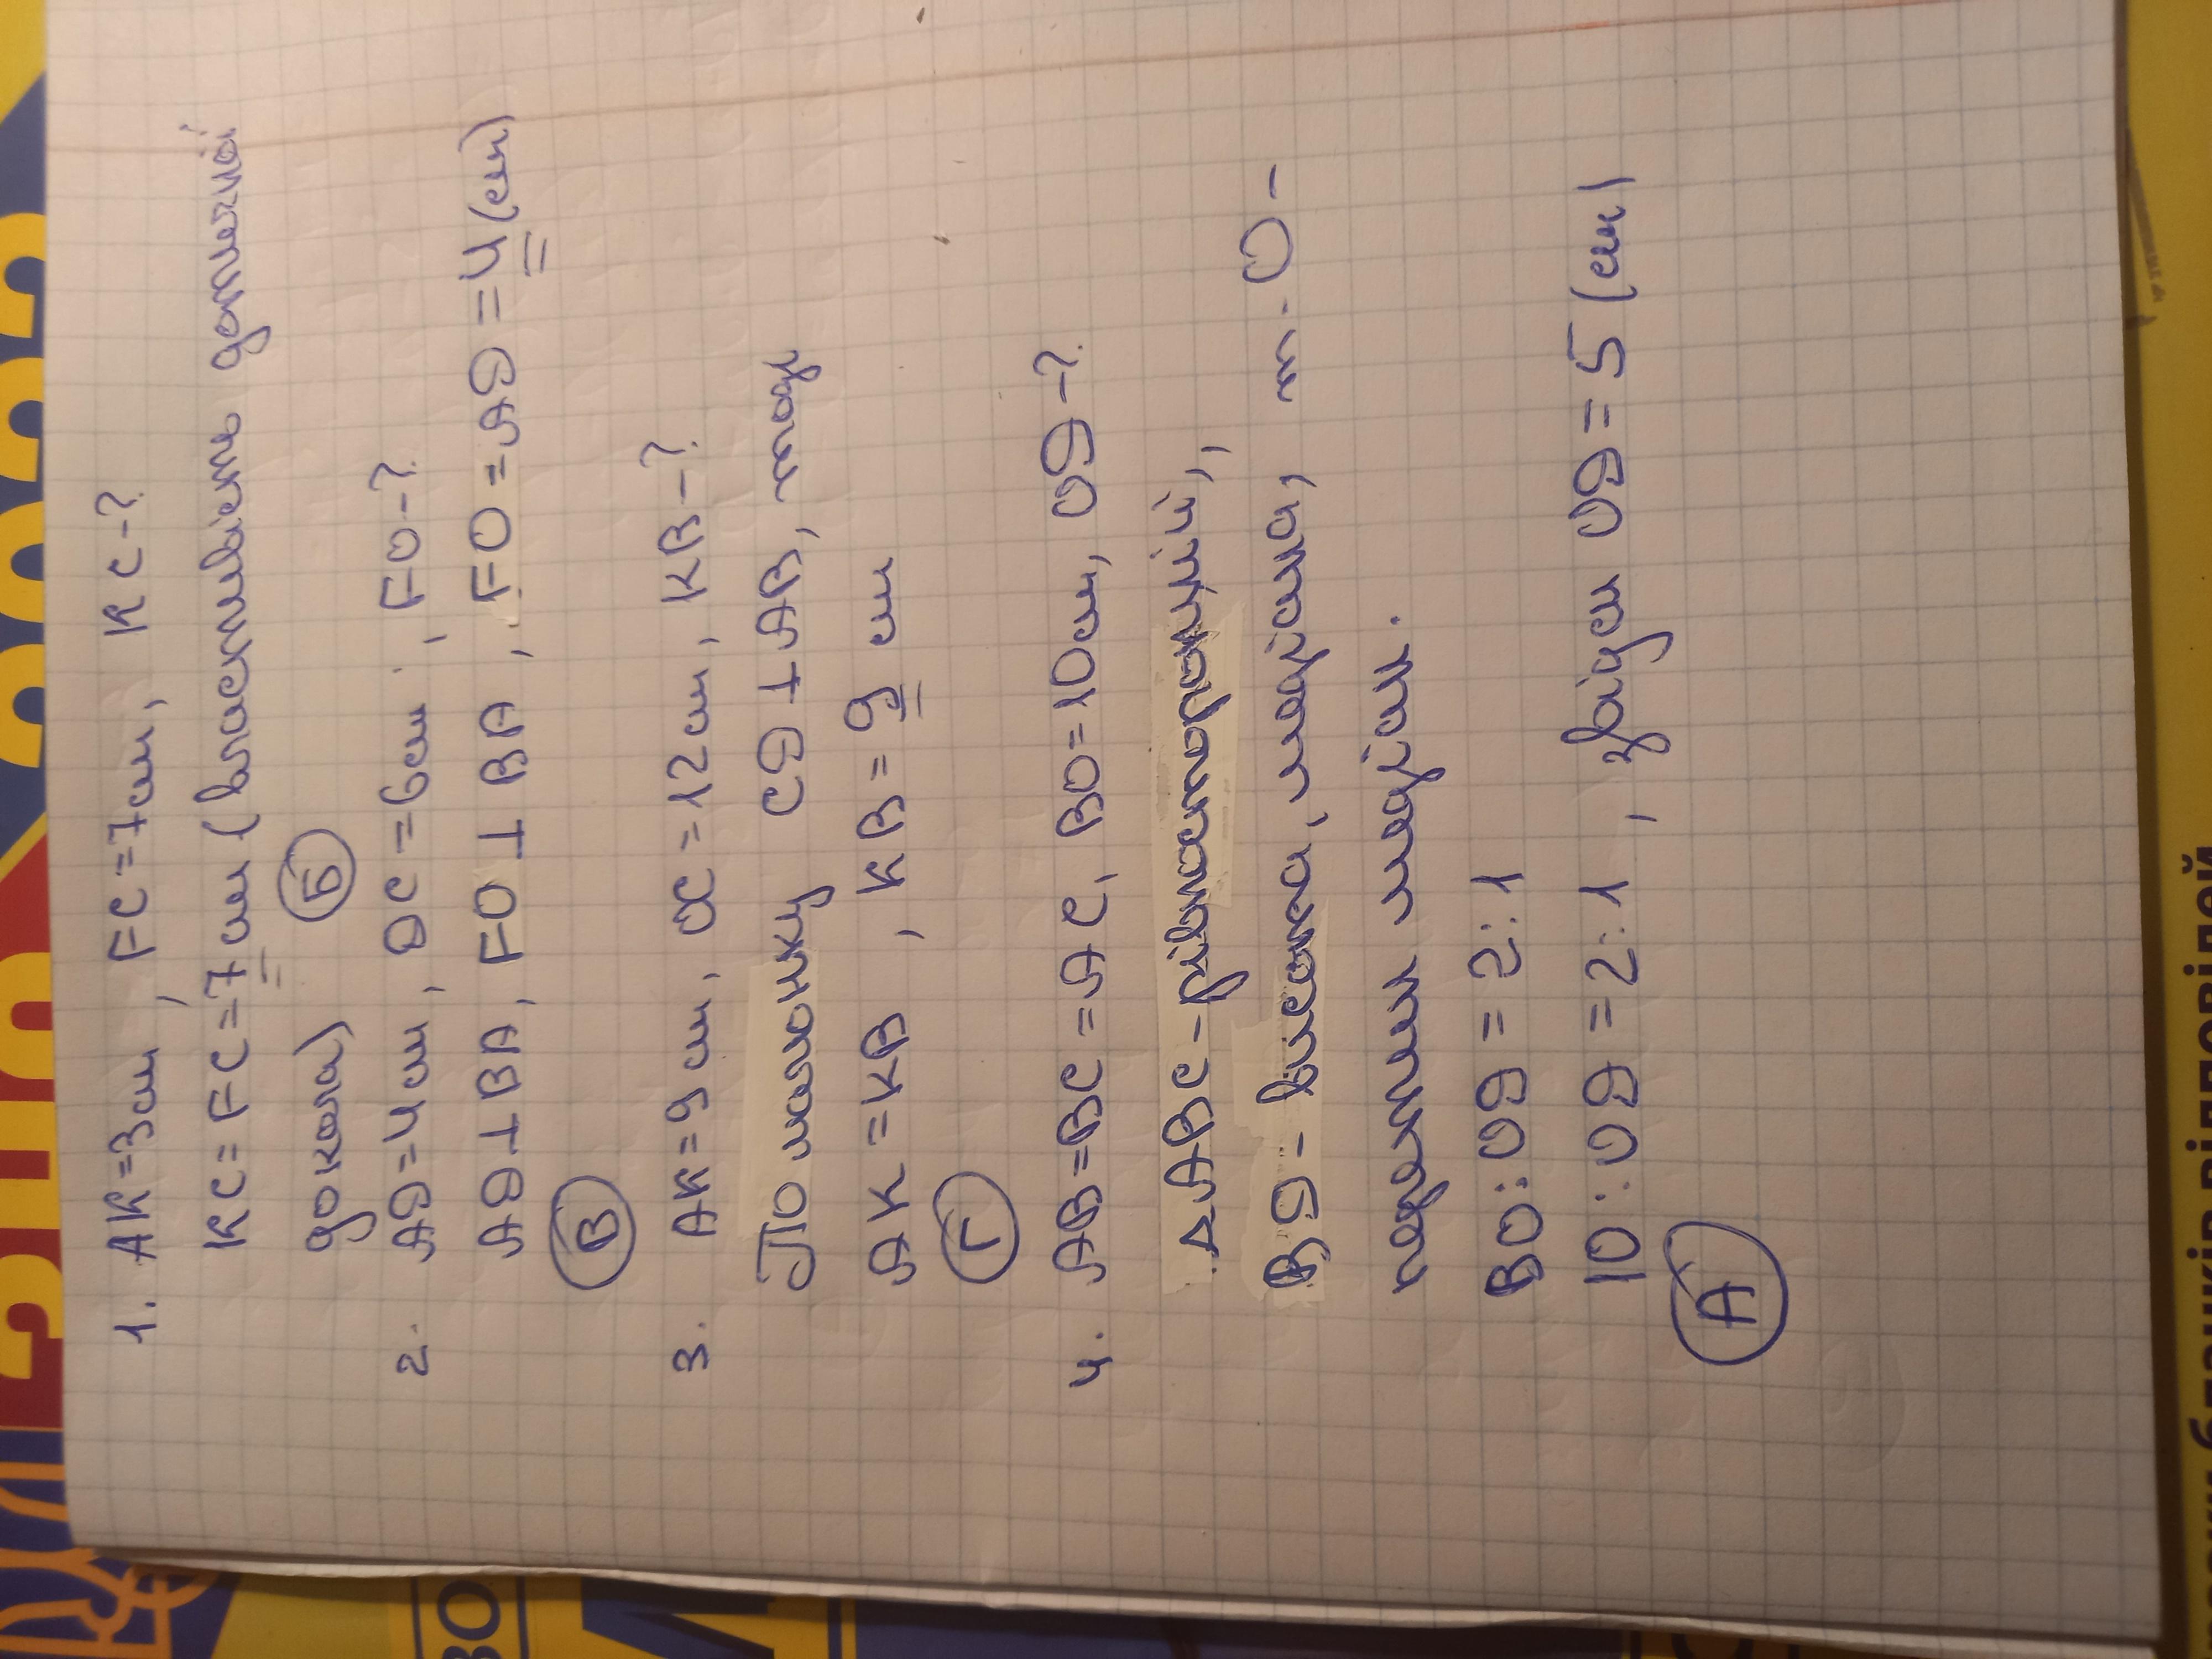 1. АК=3см, FC=7см, КС-?
КС=FC=7см (властивість дотичної
до кола) Б
2. АО=4см, ОС=6см, FO-?
АО⊥ВА, FO⊥ВА, FO=АО=4(см)
В
3. АК=9см, ОС=12см, КВ-?
По малюнку СО⊥АВ, тоді
АК=КВ, КВ=9 см
Г
4. АВ=ВС=АС, ВО=10см, ОD-?
△АВС-рівносторонній,
ВD-висота, медіана, т.О-
перетин медіан.
ВО:ОD=2:1
10:ОD=2:1, звідси ОD=5(см)
А
ВО
відповідей